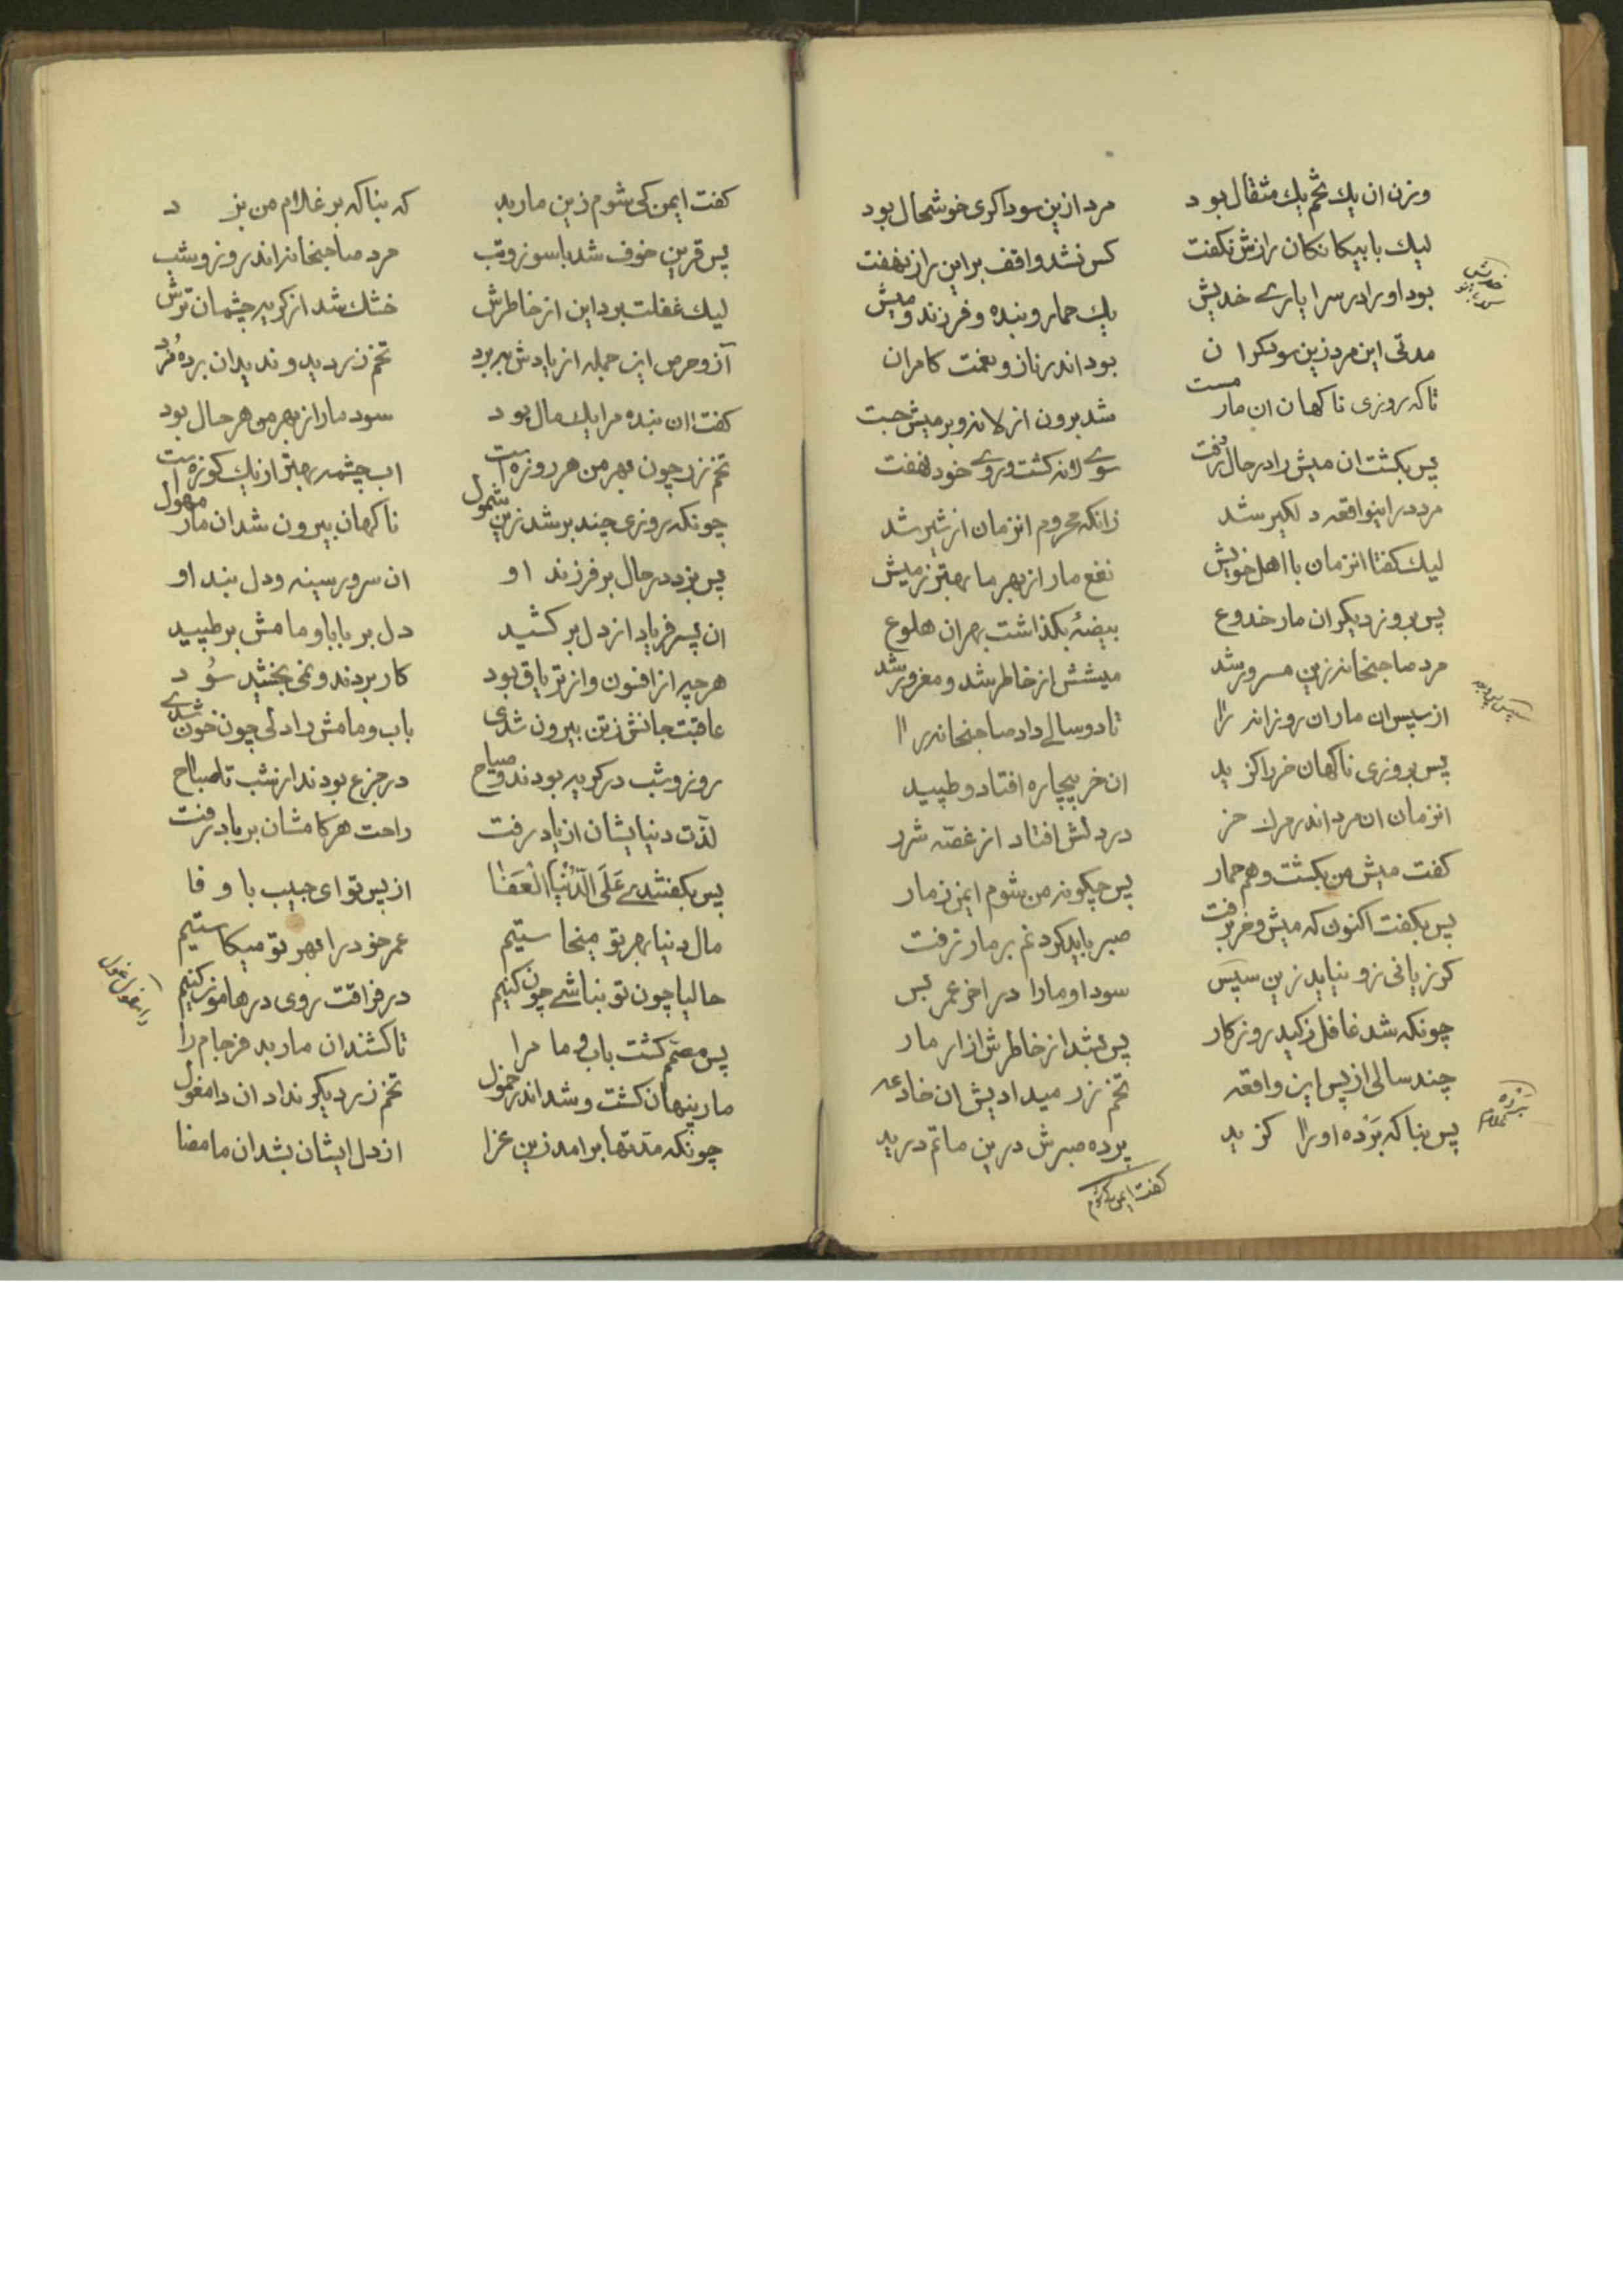 وزن ان یك تخم یك مثقال بود مرد ازین سوداکری خوشحال بود
لیك با بیکانکان رازش نکفت کس نشد واقف بر این راز نهفت
بود او را در سرا یارے خدیش یك حمار و بنده و فرزند و میش
مدتی این مرد زین سودکران بود اندر ناز و نعمت کامران
تا که روزی ناکهان ان مار مست شد برون از لانه و بر میش جست
پس بکشت ان میش را در حال رفت سوے لانه کشت و روے خود نهفت
مرد را اینواقعه دلکیر شد زانکه محروم انزمان از شیر شد
لیك کفتا انزمان با اهل خویش نفع مار از بهر ما بهتر ز میش
پس بروز دیکر ان مار خدوع بیضهٔ بکذاشت بهر ان هلوع
مرد صاحبخانه زین مسرور شد میشش از خاطر شد و مغرور شد
از سپس ان مار ان روزانه را تا دو سالے داد صاحبخانه را
پس بروزی ناکهان خر را کزید ان خر بیچاره افتاد و طپید
انزمان ان مرد اندر مرك خر در دلش افتاد از غصّه شرر
کفت میش من بکشت و هم حمار پس چکونه من شوم ایمن ز مار
پس بکفت اکنون که میش و خر برفت صبر باید کرد غم بر ما نرفت
کر زیانی زو نیاید زین سپس سود او ما را در اخر عمر بس
چونکه شد غافل ز کید روزکار پس بشد از خاطرش ازار مار
چند سالی از پس این واقعه تخم زر میداد پیش ان خادعه
پس بناکه بَرْده او را کزید پرده صبرش درین ماتم درید
کفت ایمن کی شوم
کفت ایمن کی شوم زین مار بد که بناکه بر غلام من بزد
پس قرین خوف شد با سوز و تب مرد صاحبخانه اندر روز و شب
لیك غفلت برد این از خاطرش خشك شد از کریه چشمان ترش
آز و حرص این جمله از یادش ببرد تخم زر دید و ندید ان برده مُرد
کفت ان بنده مرا یك مال بود سود مار از بهر من هر حال بود
تخم زر چون بهر من هر روزه است اب چشمه بهتر از یك کوزه است
چونکه روزی چند بر شد زین شمول ناکهان بیرون شد ان مار مهول
پس بزد در حال بر فرزند او ان سرور سینه و دل بند او
ان پسر فریاد از دل بر کشید دل بر بابا و مامش بر طپید
هر چیر از افسون و از تریاق بود کار بردند و نمی بخشید سُود
عاقبت جانش ز تن بیرون شدی باب و مامش را دلی چون خون شدے
روز و شب در کریه بودند و صیاح در جزع بودند از شب تا صباح
لذّت دنیایشان از یاد رفت راحت هر کامشان بر باد رفت
پس بکفتندے عَلَی الدُّنْیَا الْعَفٰا از پس تو ای حبیب با وفا
مال دنیا بهر تو میخواستیم عمر خود را بهر تو میکاستیم
حالیا چون تو نباشے چون کنیم در فراقت روی در هامون کنیم
پس مصمّم کشت باب و مام را تا کشند ان مار بد فرجام را
مار پنهان کشت و شد اندر خمول تخم زر دیکر نداد ان دامغول
چونکه مدّتها بر امد زین عزا از دل ایشان بشد ان ما مضا